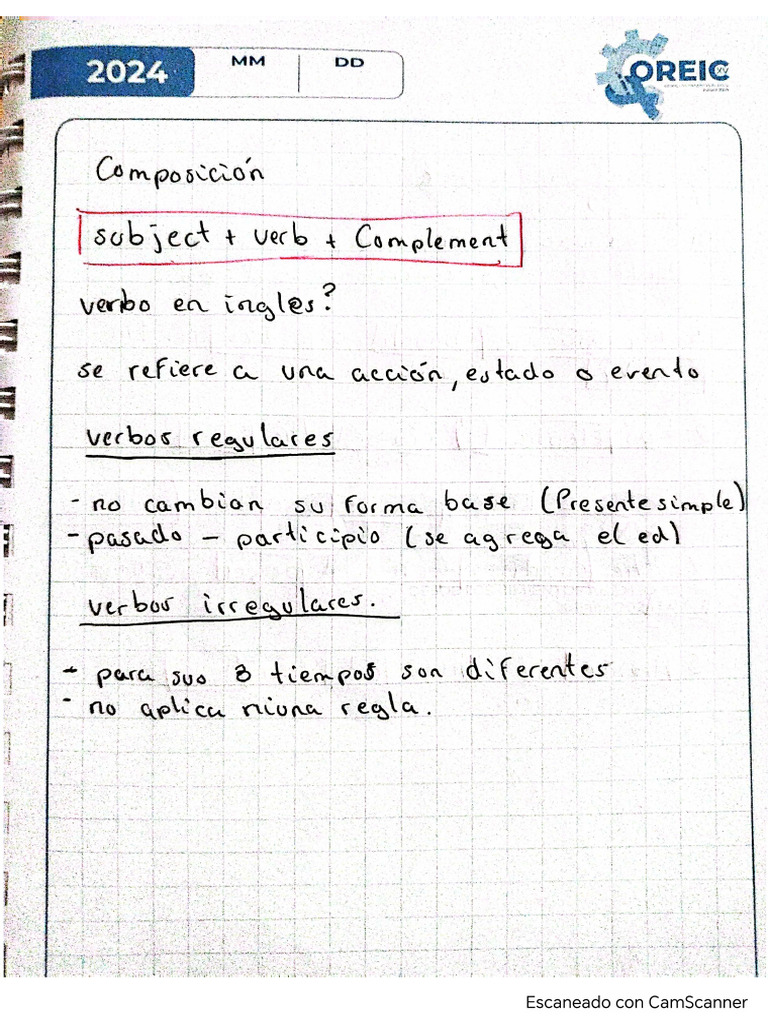 2024
MM
DD
OREIC
XV
Composición
subject + verb + Complement
verbo en ingles?
se refiere a una acción, estado o evento
verbos regulares
- no cambian su forma base (Presente simple)
- pasado - participio (se agrega el ed)
verbos irregulares.
- para sus 3 tiempos son diferentes
- no aplica niuna regla.
Escaneado con CamScanner